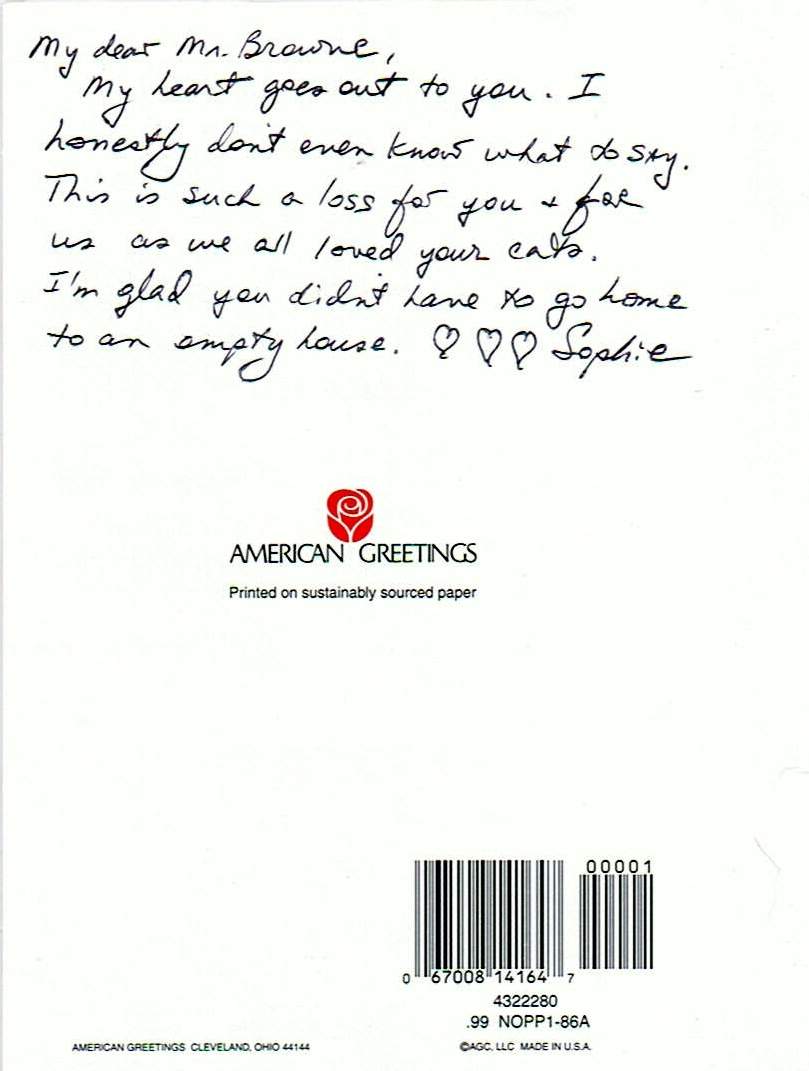 My dear Mr. Browne,
My heart goes out to you. I
honestly don't even know what to say.
This is such a loss for you & for
us as we all loved your cats.
I'm glad you didn't have to go home
to an empty house. ♡ ♡ ♡ Sophie
AMERICAN GREETINGS
Printed on sustainably sourced paper
00001
0 67008 14164 7
4322280
.99 NOPP1-86A
AMERICAN GREETINGS CLEVELAND, OHIO 44144 ©AGC, LLC MADE IN U.S.A.